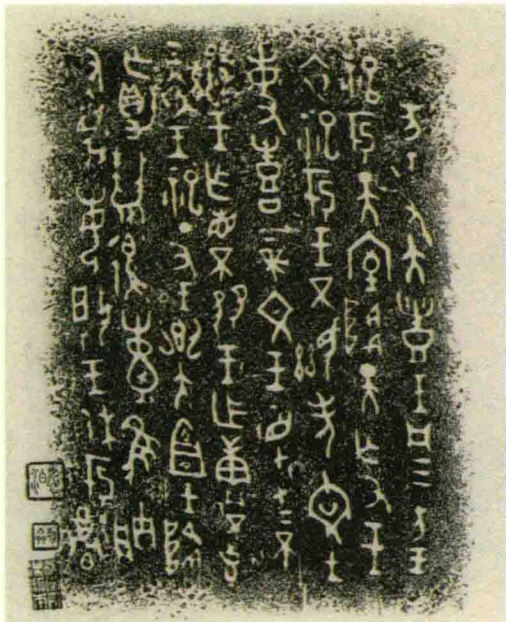 亥王又大豊王凡三方王
祀于天室降天亡又王
衣祀于王不顯考文王
事喜上帝文王監才上不
顯王乍省不王乍庚不克
乞衣王祀丁丑王鄉大宜王降
亡爵退囊隹朕
又蔑每揚王休于尊